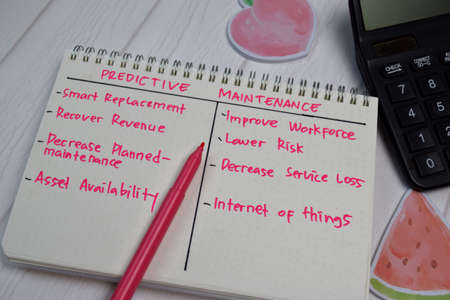 PREDICTIVE MAINTENANCE
- Smart Replacement
- Recover Revenue
- Decrease Planned-
maintenance
- Asset Availability
- Improve Workforce
- Lower Risk
- Decrease Service Loss
- Internet of things
7
8
4
5
1
2
0